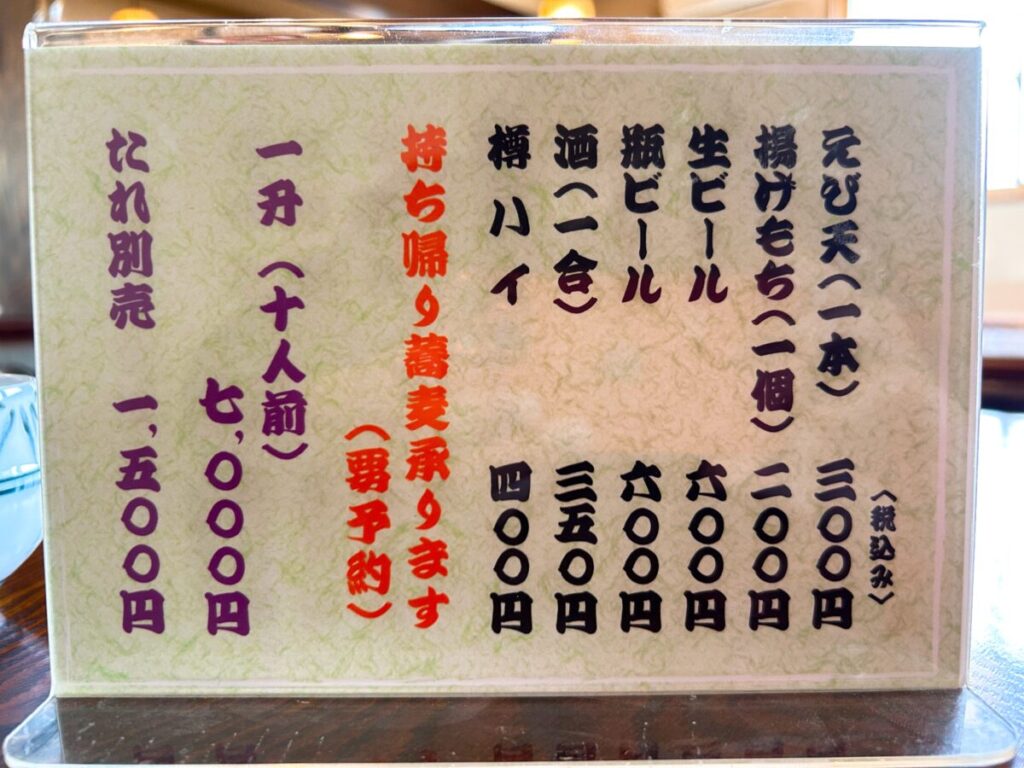 （税込み）
えび天（一本）　三〇〇円
揚げもち（一個）　二〇〇円
生ビール　六〇〇円
瓶ビール　六〇〇円
酒（一合）　三五〇円
樽ハイ　四〇〇円
持ち帰り蕎麦承ります
（要予約）
一升（十人前）
七,〇〇〇円
たれ別売　一,五〇〇円